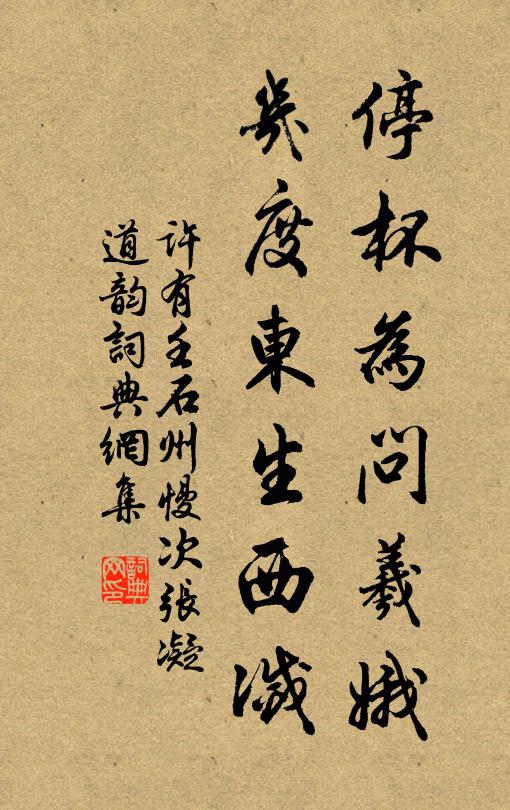 停杯為問羲娥
幾度東生西滅
許有壬石州慢次張凝
道韵詞典網集
詞典網印